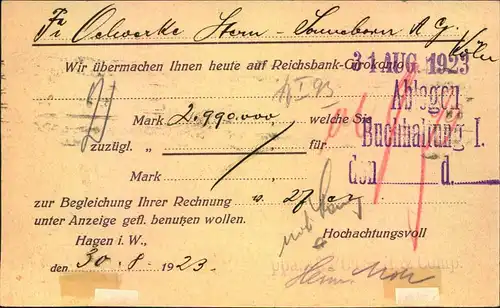 Fa Oelwerke Stern-Sonneborn A.G.
Köln
Wir übermachen Ihnen heute auf Reichsbank-Girokonto
31 AUG 1923
Ablegen
Mark 2.990.000 welche Sie
Buchhaltung I.
zuzügl. „ für
den d.
Mark
zur Begleichung Ihrer Rechnung v. 27. cr.
unter Anzeige gefl. benutzen wollen.
Hagen i. W., Hochachtungsvoll
den 30. 8. 1923.